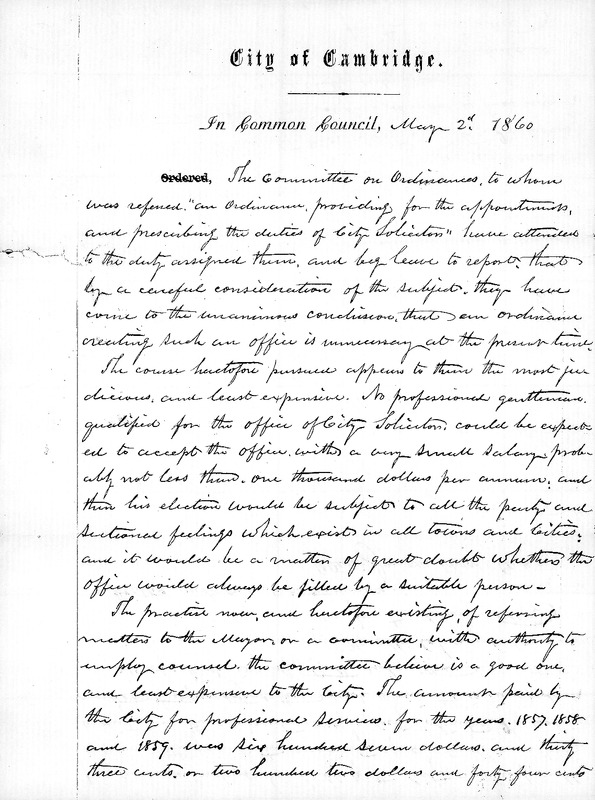 City of Cambridge.
In Common Council, May 2d. 1860
Ordered, The Committee on Ordinances, to whom
was refered "an Ordinance, providing for the appointment,
and prescribing the duties of City Solicitor" have attended
to the duty assigned them, and beg leave to report, that
by a careful consideration of the subject, they have
come to the unanimous conclusion, that an ordinance
creating such an office is unnecessary at the present time.
The course heretofore pursued appears to them the most ju-
dicious, and least expensive. No professional gentleman,
qualified for the office of City Solicitor, could be expect-
ed to accept the office, with a very small salary, prob-
ably not less than, one thousand dollars per annum, and
then his election would be subject to all the party and
sectional feelings which exist in all towns and Cities;
and it would be a matter of great doubt whether the
office would always be filled by a suitable person -
The practise now, and heretofore existing, of referring
matters to the Mayor, or a committee, with authority to
employ counsel, the committee believe is a good one,
and least expensive to the City. The amount paid by
the City for professional services, for the years, 1857, 1858
and 1859, was six hundred seven dollars, and thirty
three cents, or two hundred two dollars and forty four cents